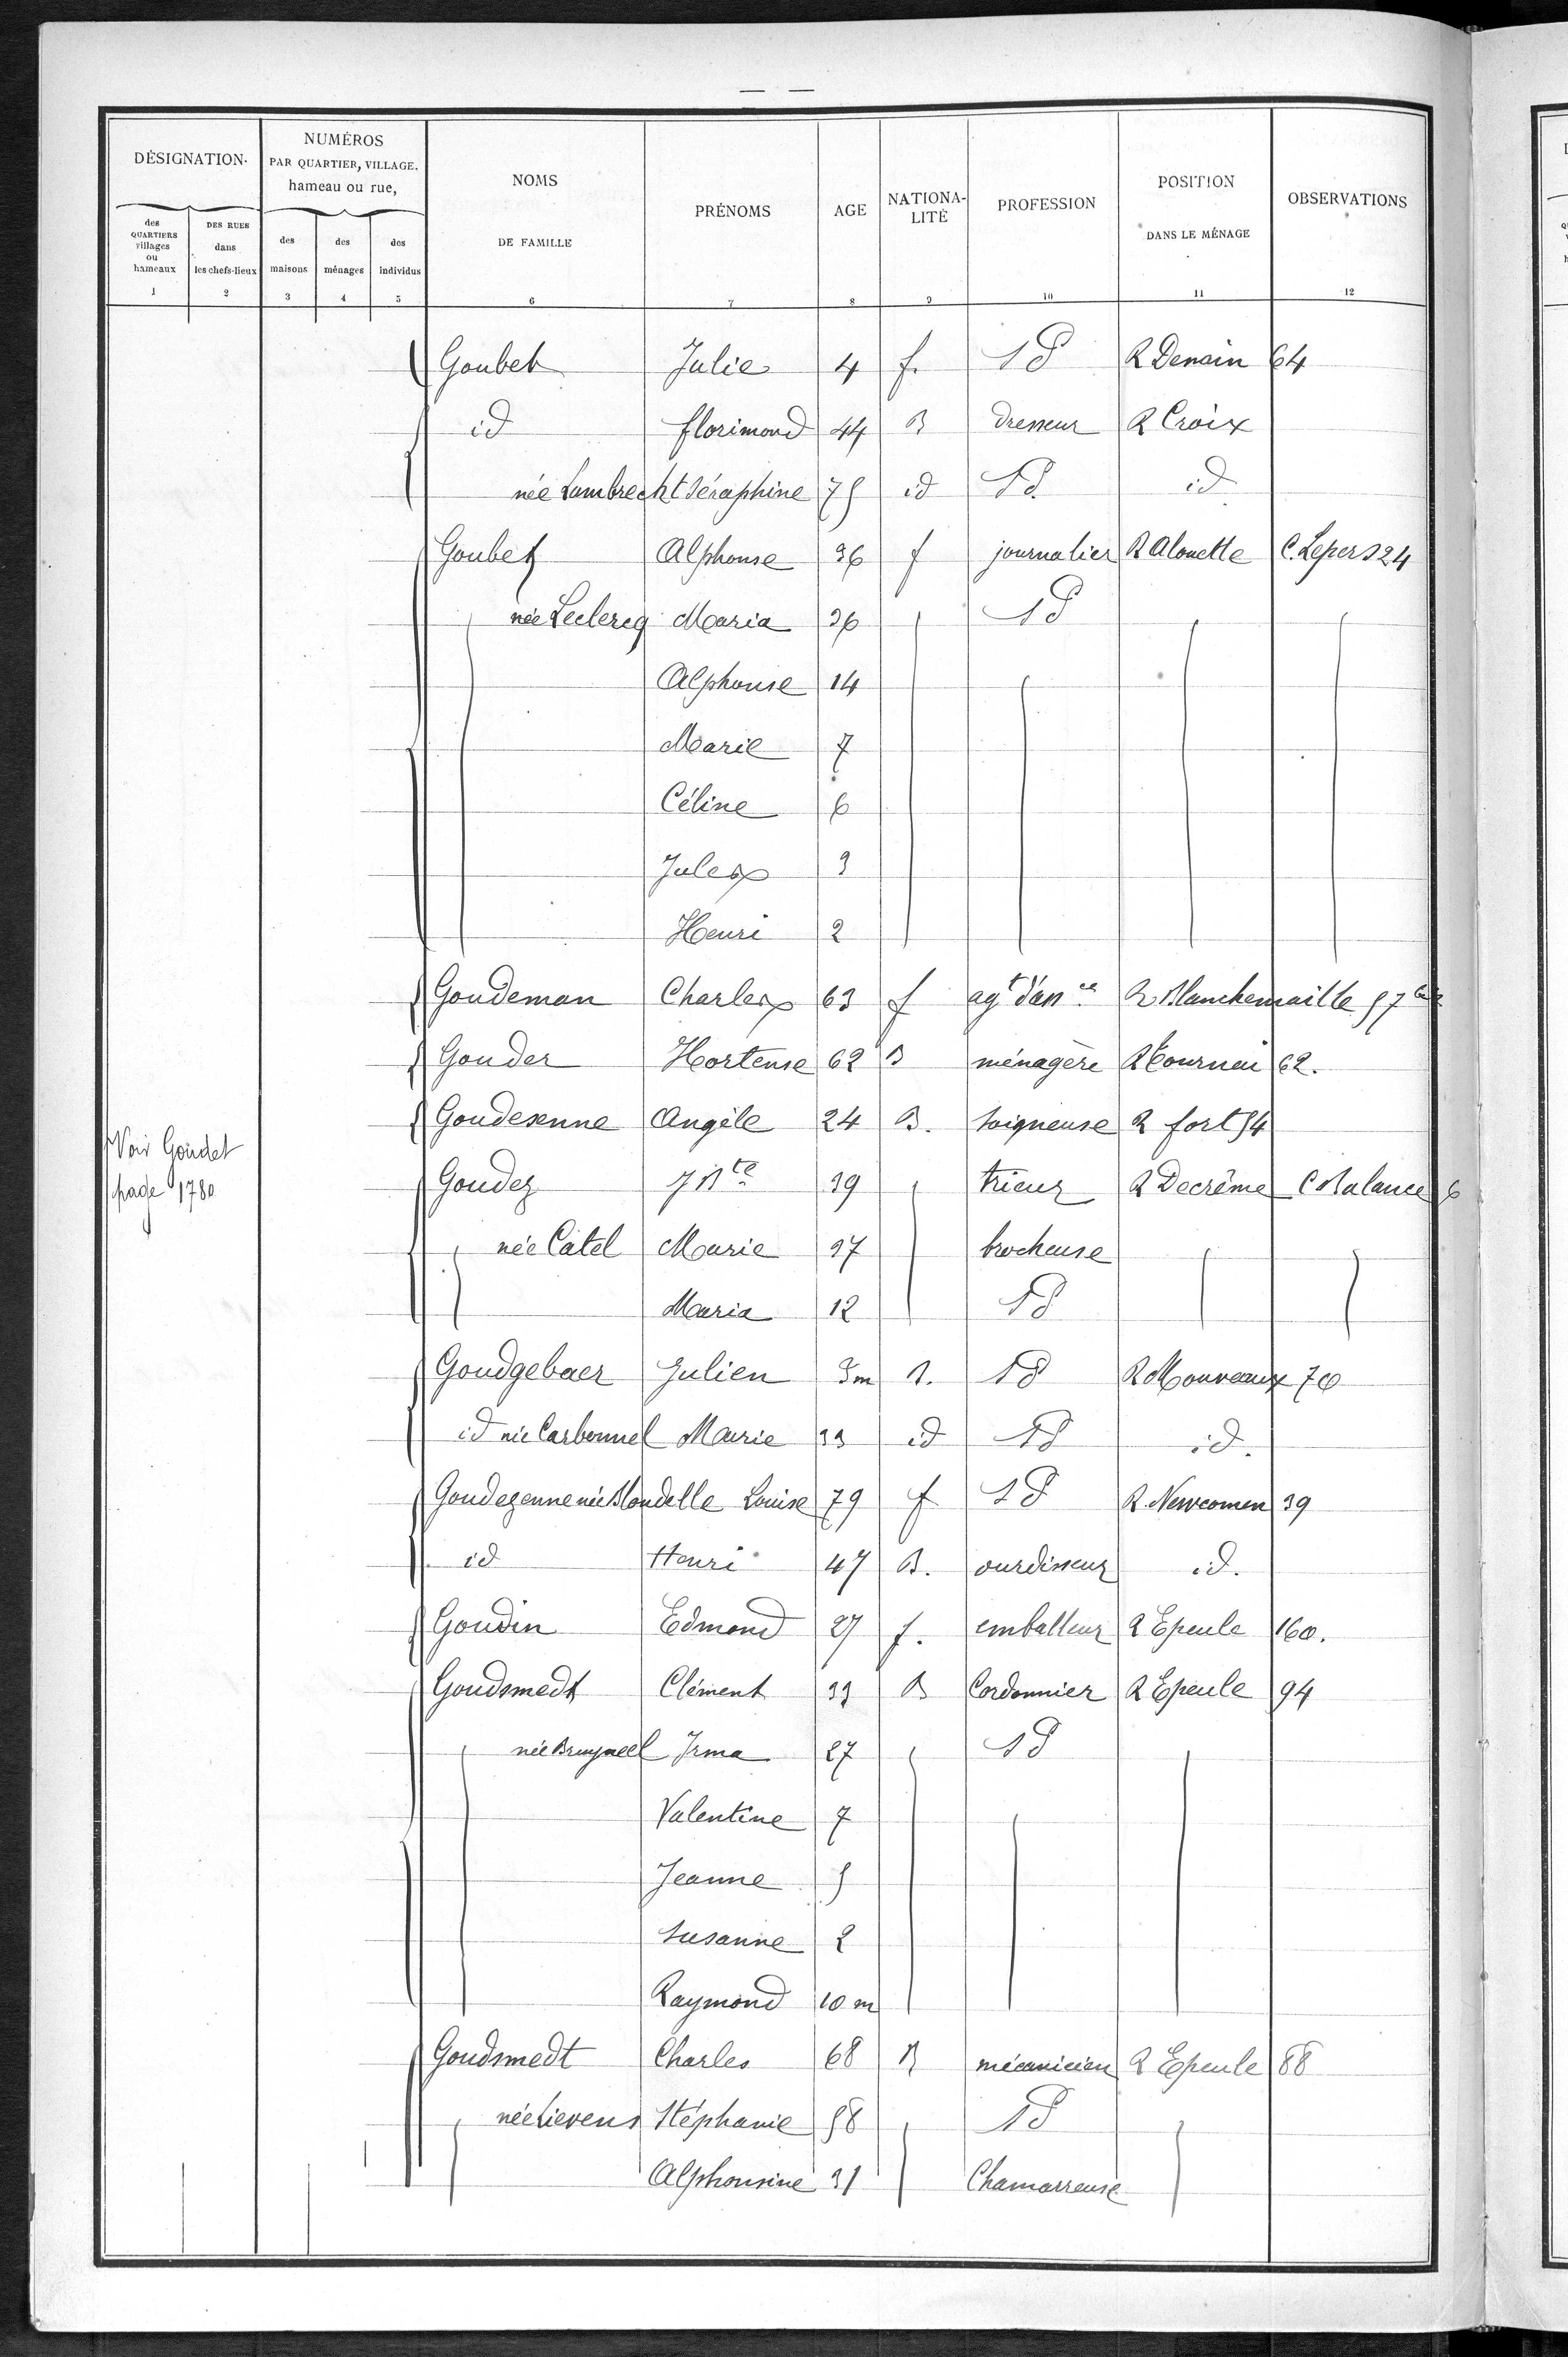 DÉSIGNATION
des QUARTIERS villages ou hameaux
DES RUES dans les chefs-lieux
NUMÉROS
PAR QUARTIER, VILLAGE.
hameau ou rue,
des maisons
des ménages
des individus
NOMS
DE FAMILLE
PRÉNOMS
AGE
NATIONALITÉ
PROFESSION
POSITION
DANS LE MÉNAGE
OBSERVATIONS
1 2 3 4 5 6 7 8 9 10 11 12
Goubet Julie 4 f. SP R Denain 64
id florimond 44 B dresseur R Croix
née Lambrecht Séraphine 75 id SP. id
Goubet Alphonse 36 f journalier R Alouette C. Lepers 24
née Leclercq Maria 36 SP
Alphonse 14
Marie 7
Céline 6
Jules 3
Henri 2
Goudeman Charles 63 f agt d'assce R Blanchemaille 57 bis
Gouder Hortense 62 B ménagère R Tournai 62.
Goudesenne Angèle 24 B. soigneuse R fort 54
Voir Goudet
page 1780
Goudez J Bte 39 trieur R Decrême C Balance 6
née Catel Marie 37 brocheuse
Maria 12 SP
Goudgebaer Julien 3m B. SP R Mouveaux 70
id née Carbonnel Marie 33 id SP id.
Goudezenne née Blondelle Louise 79 f SP R. Newcomen 39
id Henri 47 B. ourdisseur id.
Goudin Edmond 27 f. emballeur R Epeule 160.
Goudsmedt Clément 33 B Cordonnier R Epeule 94
née Bruyneel Irma 27 SP
Valentine 7
Jeanne 5
Susanne 2
Raymond 10 m
Goudsmedt Charles 68 B mécanicien R Epeule 88
née Lievens Stéphanie 58 SP
Alphonsine 31 Chamarreuse